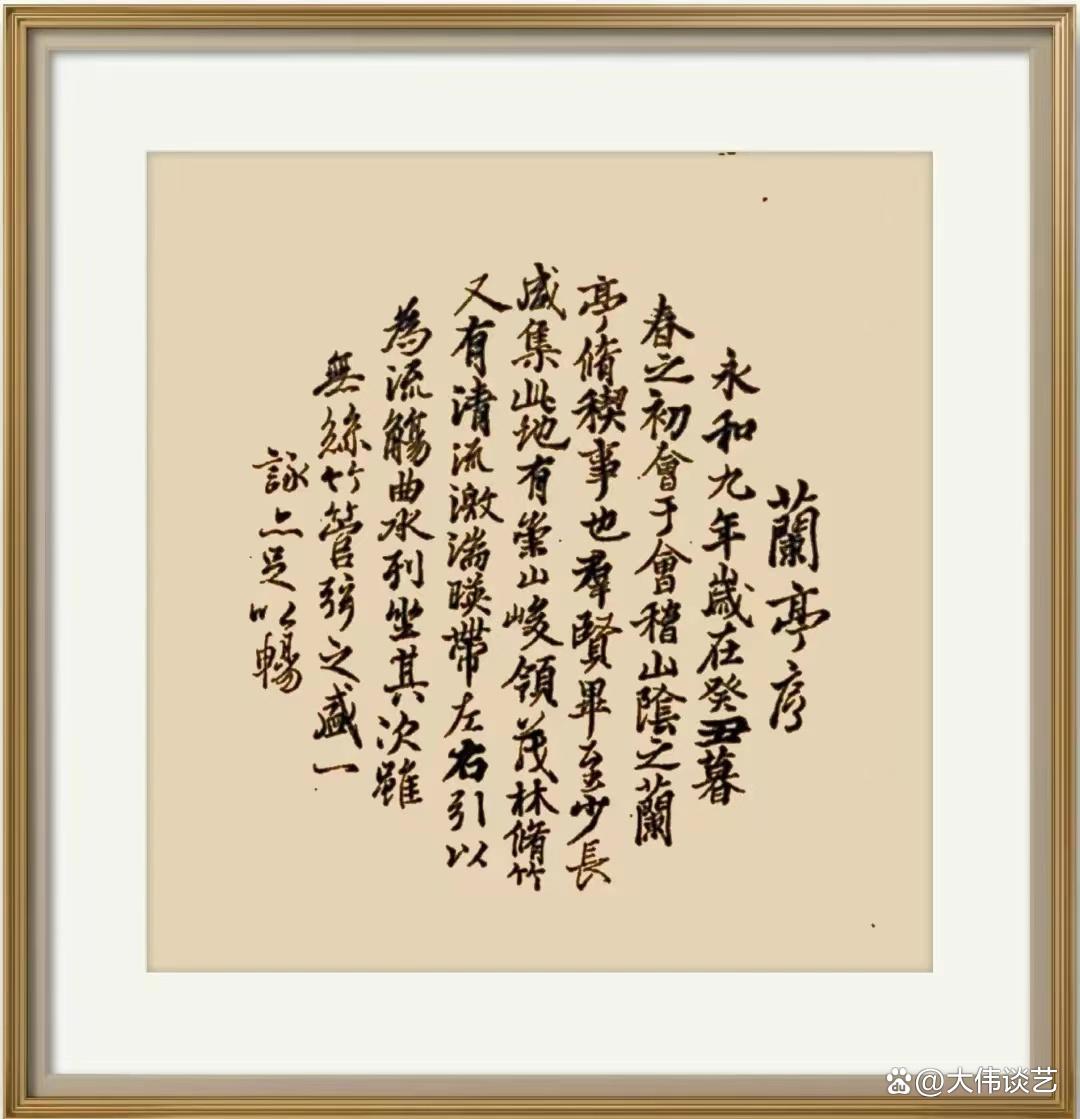 蘭亭序
永和九年歲在癸丑暮
春之初會于會稽山陰之蘭
亭脩稧事也羣賢畢至少長
咸集此地有崇山峻領茂林脩竹
又有清流激湍暎帶左右引以
為流觴曲水列坐其次雖
無絲竹管弦之盛一
詠亦足以暢
du @大伟谈艺